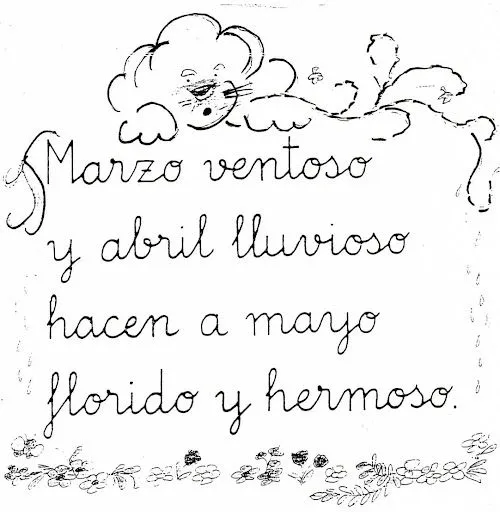 Marzo ventoso
y abril lluvioso
hacen a mayo
florido y hermoso.